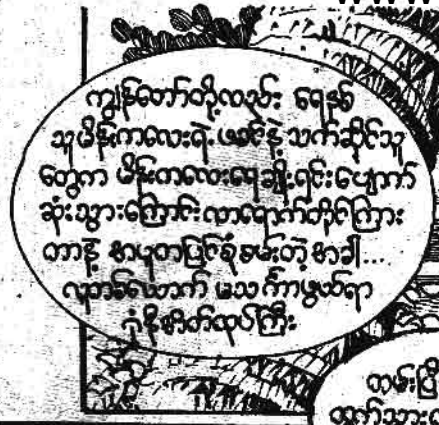 ကျွန်တော်တို့လည်း ရေနစ်
သူမိန်းကလေးရဲ့ ဖခင်နဲ့ သက်ဆိုင်သူ
တွေက မိန်းကလေးရေချိုးရင်းပျောက်
ဆုံးသွားကြောင်း လာရောက်တိုင်ကြား
တာနဲ့ စုံစမ်းတဲ့အခါ...
လူတစ်ယောက် မသင်္ကာဖွယ်ရာ
ဂုံနီအိတ်ထုပ်ကြီး
ထွက်သွား